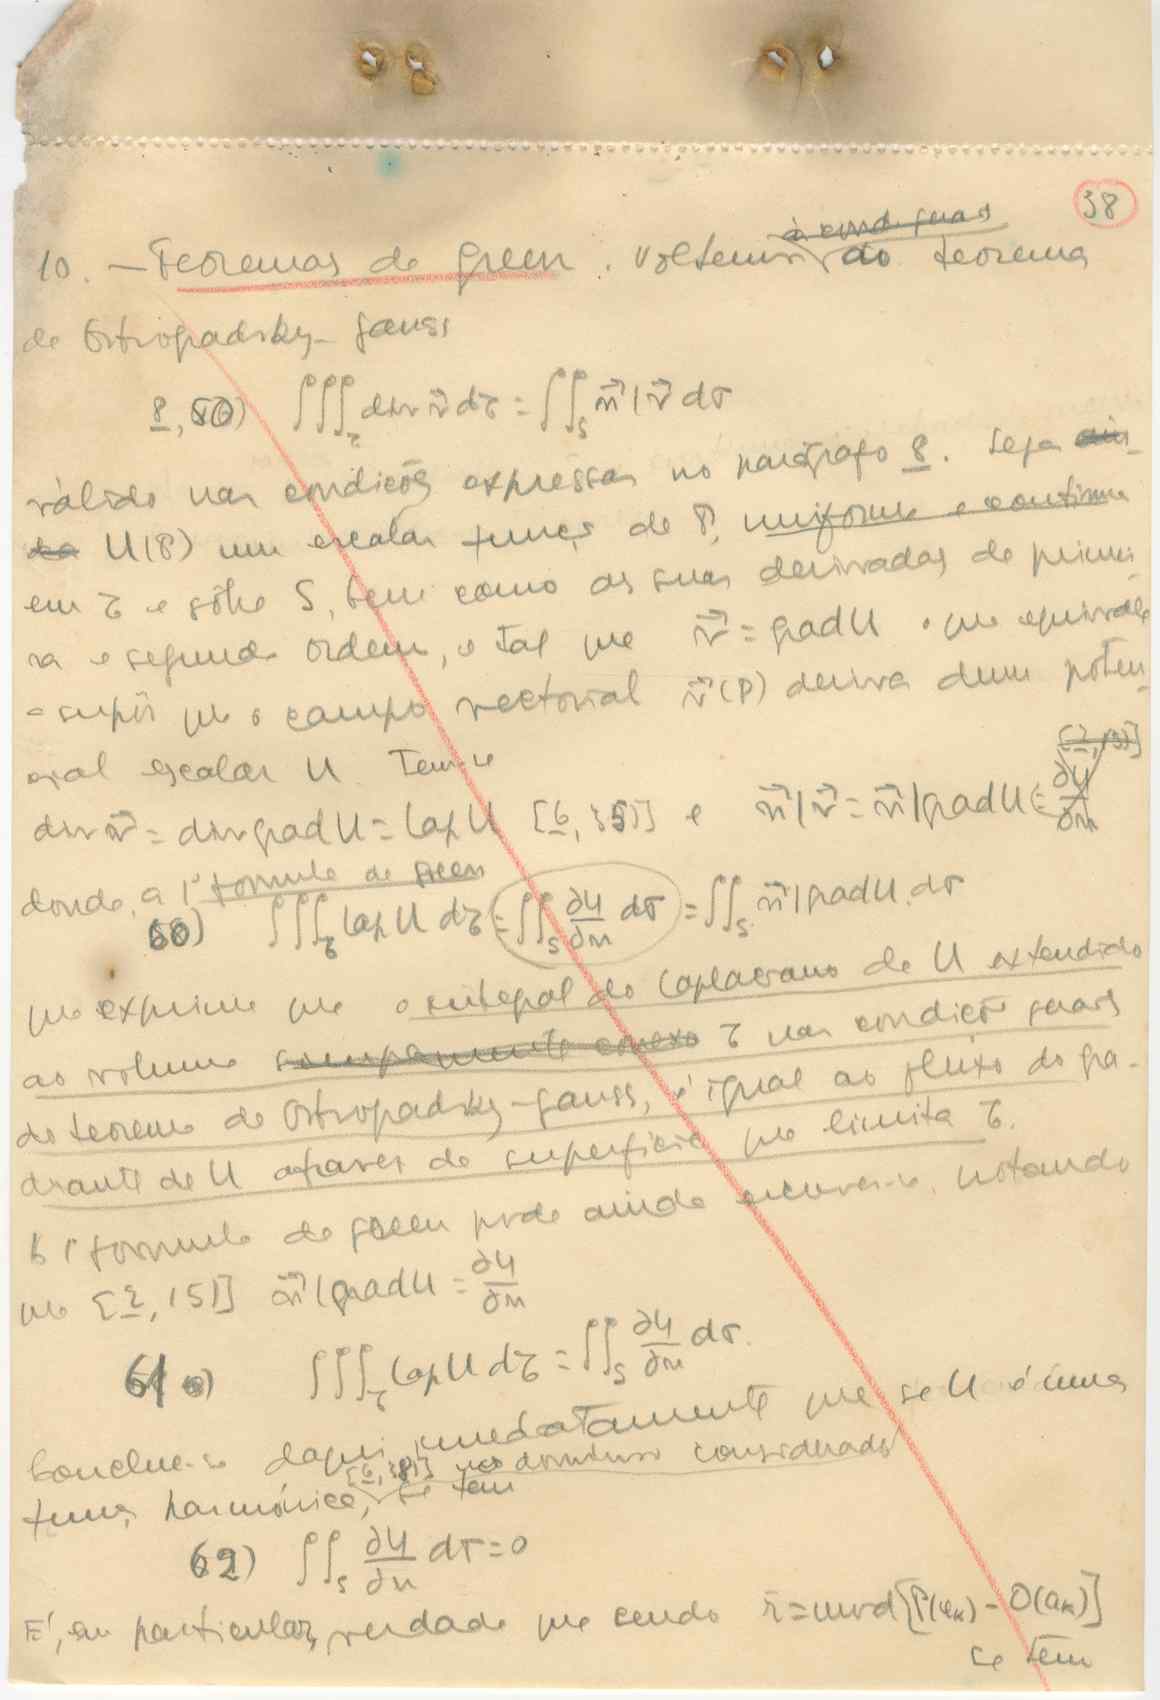 38
à cond. gerais
10. — Teoremas de Green. Voltemos ao teorema
de Ostrogadsky-Gauss
8, 50) ∫∫∫_τ div v⃗ dτ = ∫∫_S n⃗ | v⃗ dσ
válido nas condições expressas no parágrafo 8. Seja
U(P) um escalar função de P, uniforme e contínua
em τ e sôbre S, bem como as suas derivadas de primei-
ra e segunda ordem, e tal que v⃗ = grad U o que equivale
a supôr que o campo vectorial v⃗(P) deriva dum poten-
cial escalar U. Tem-se
[2, 15)]
div v⃗ = div grad U = lap U [6, 35)] e n⃗ | v⃗ = n⃗ | grad U = ∂U/∂n
donde, a 1ª formula de Green
60) ∫∫∫_τ lap U dτ = ∫∫_S ∂U/∂n dσ = ∫∫_S n⃗ | grad U dσ
que exprime que o integral do laplaciano de U extendido
ao volume simplesmente conexo τ nas condições gerais
do teorema de Ostrogadsky-Gauss, é igual ao fluxo do gra-
diante de U através da superfície que limita τ.
A 1ª formula de Green pode ainda escrever-se, notando
que [2, 15)] n⃗ | grad U = ∂U/∂n
61) ∫∫∫_τ lap U dτ = ∫∫_S ∂U/∂n dσ.
Conclue-se daqui imediatamente que se U é uma
[6, 38)] no dominio considerado
função harmónica, se tem
62) ∫∫_S ∂U/∂n dσ = 0
E', em particular, verdade que sendo r = mod [P(x_k) - O(a_k)]
se tem